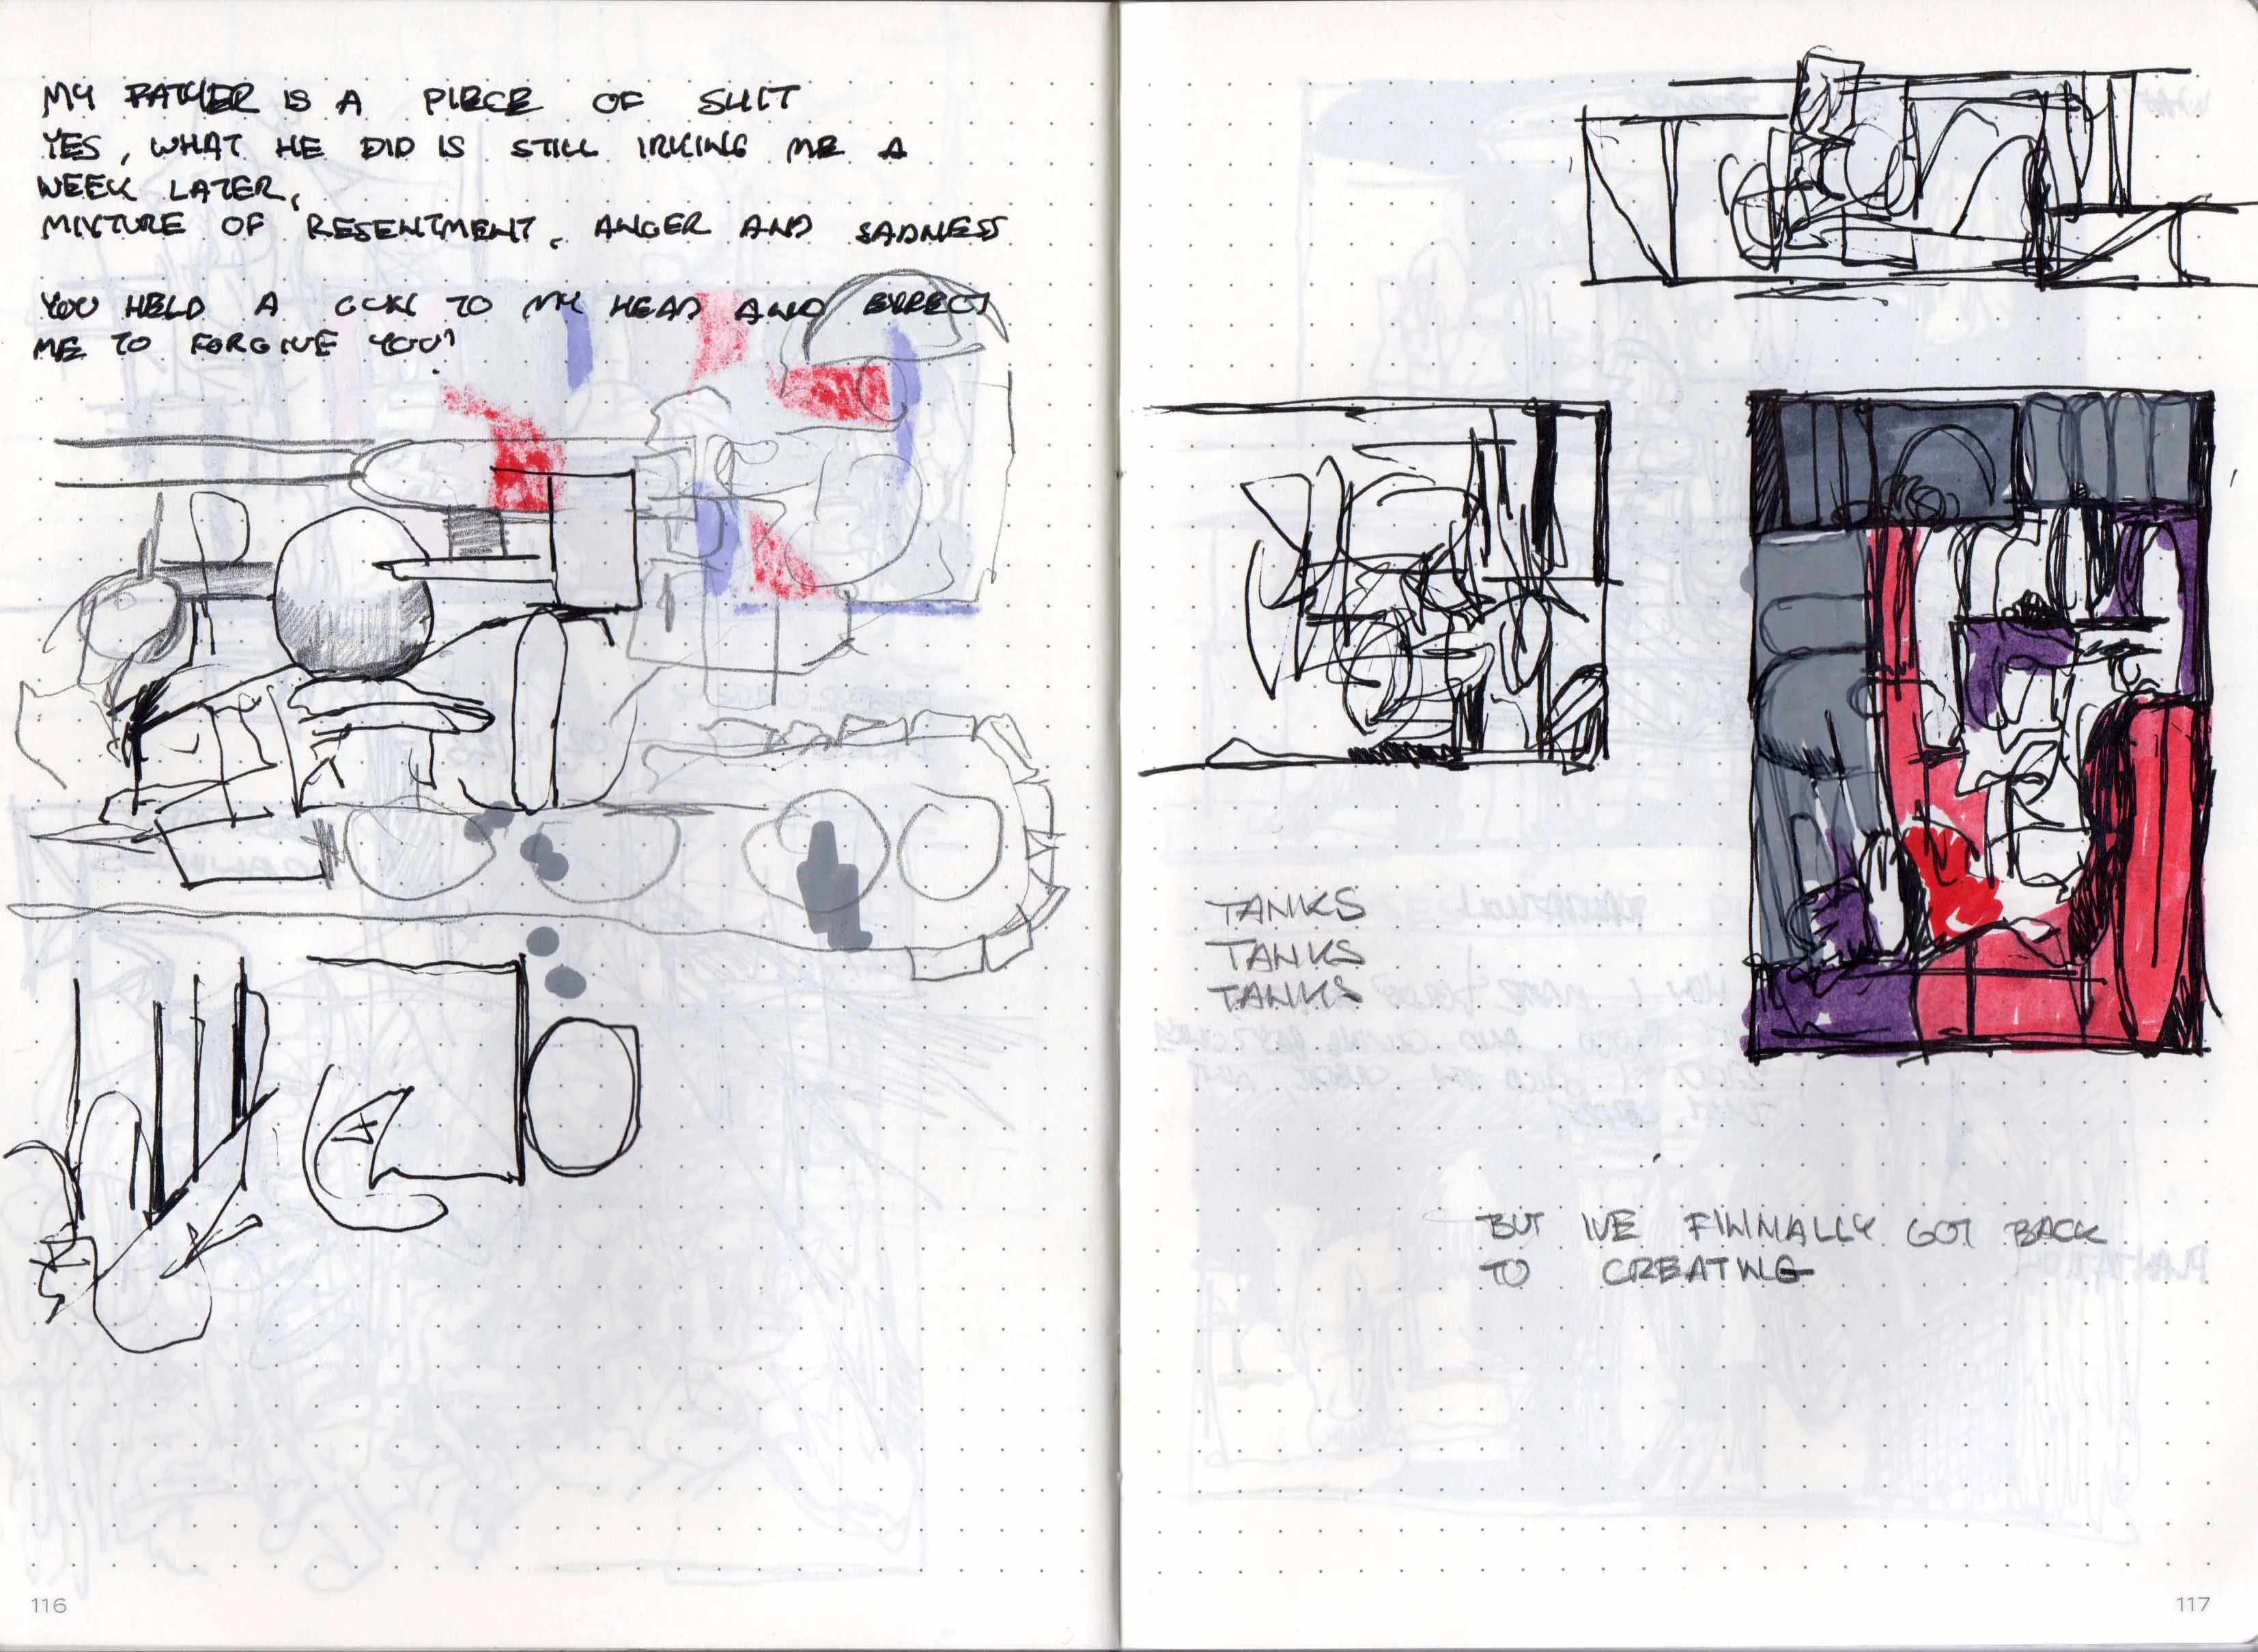 MY FATHER IS A PIECE OF SHIT
YES, WHAT HE DID IS STILL IRKING ME A
WEEK LATER,
MIXTURE OF RESENTMENT, ANGER AND SADNESS
YOU HELD A GUN TO MY HEAD AND EXPECT
ME TO FORGIVE YOU?
TANKS
TANKS
TANKS
BUT WE FINNALLY GOT BACK
TO CREATING
116
117